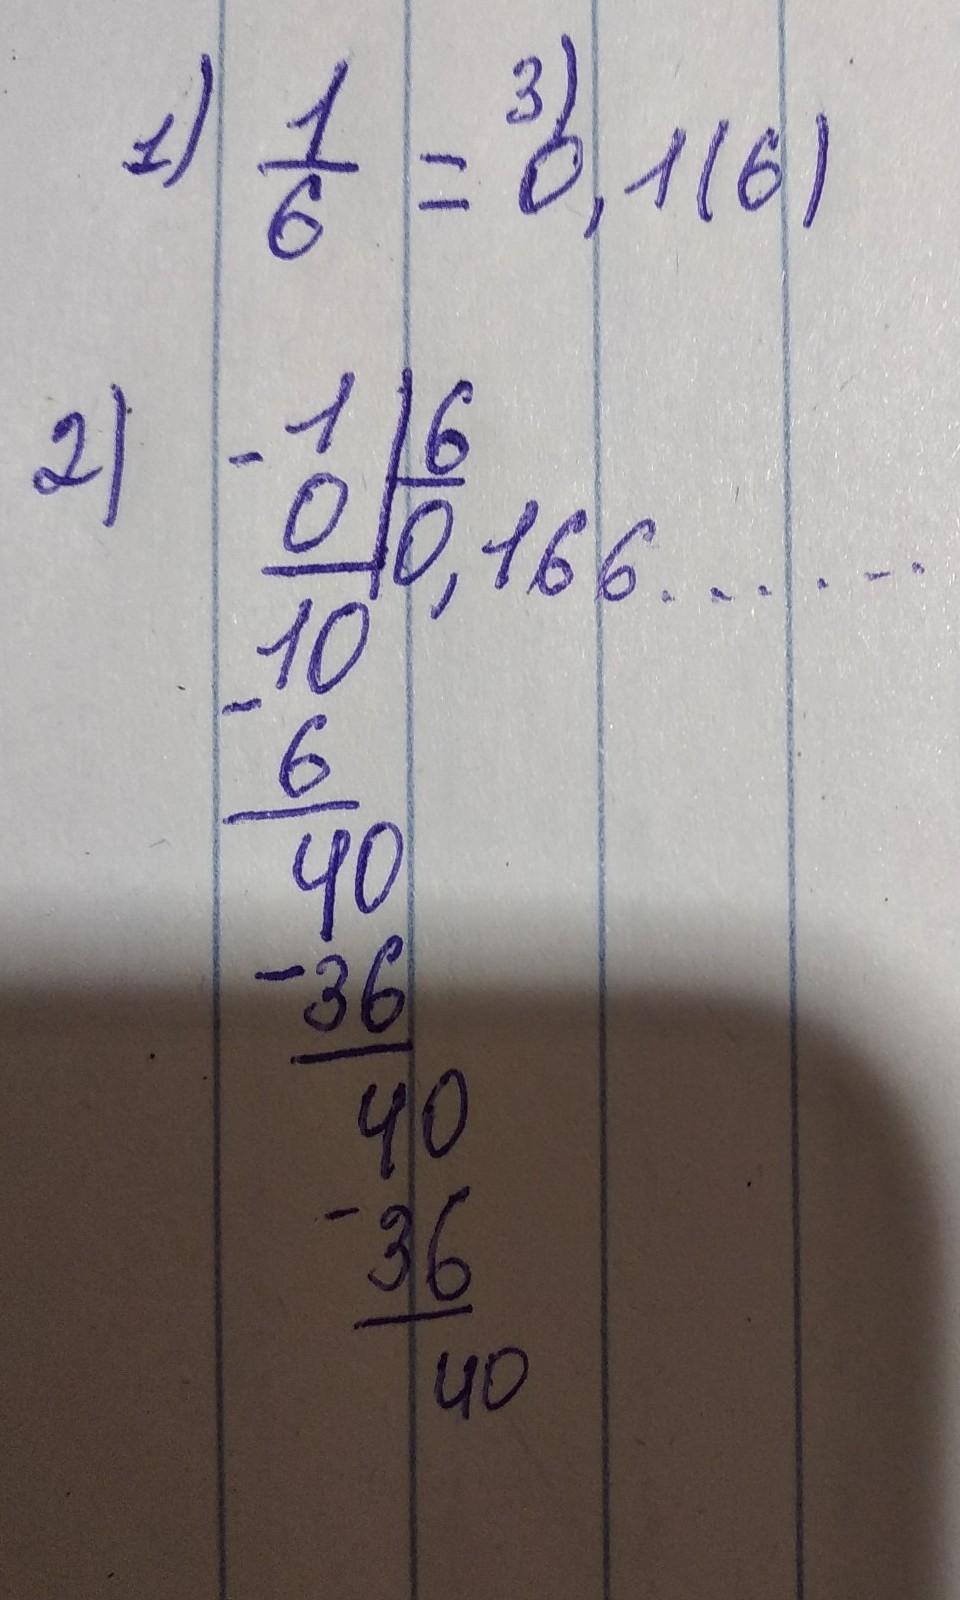 1) 1/6 = 3) 0,1(6)
2) - 1 | 6
0 | 0,166.......
10
- 6
40
- 36
40
- 36
40